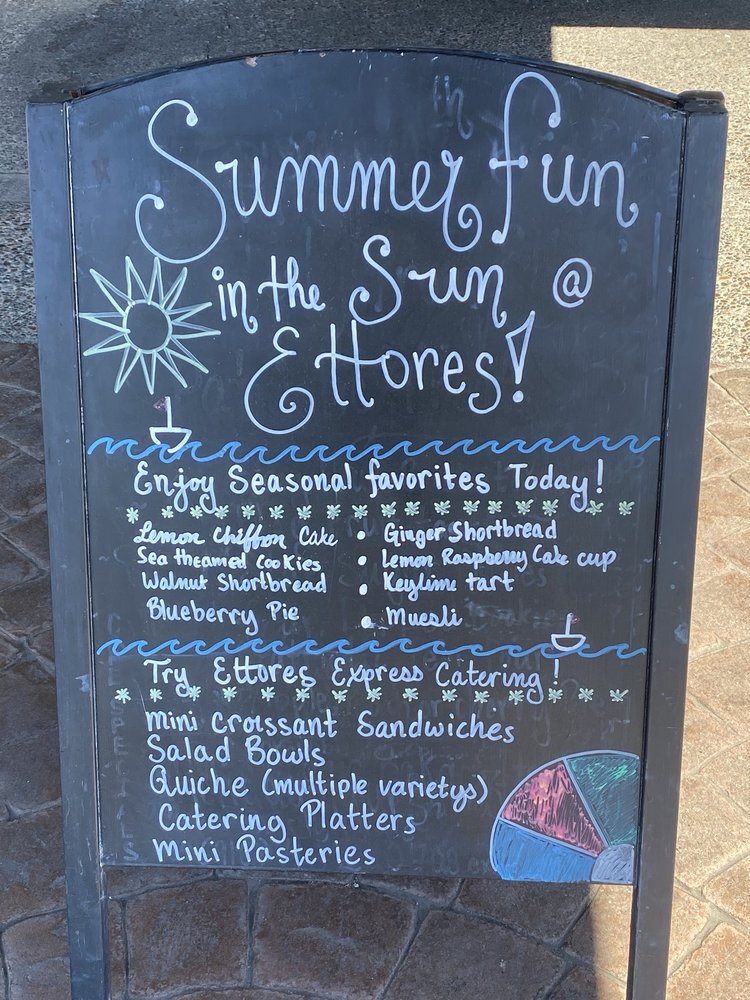 Summer fun
in the Sun @
Ettores!
Enjoy Seasonal favorites Today!
Lemon Chiffon Cake • Ginger Shortbread
Sea theamed Cookies • Lemon Raspberry Cake cup
Walnut Shortbread • Keylime tart
Blueberry Pie • Muesli
Try Ettores Express Catering!
mini Croissant Sandwiches
Salad Bowls
Quiche (multiple varietys)
Catering Platters
Mini Pasteries